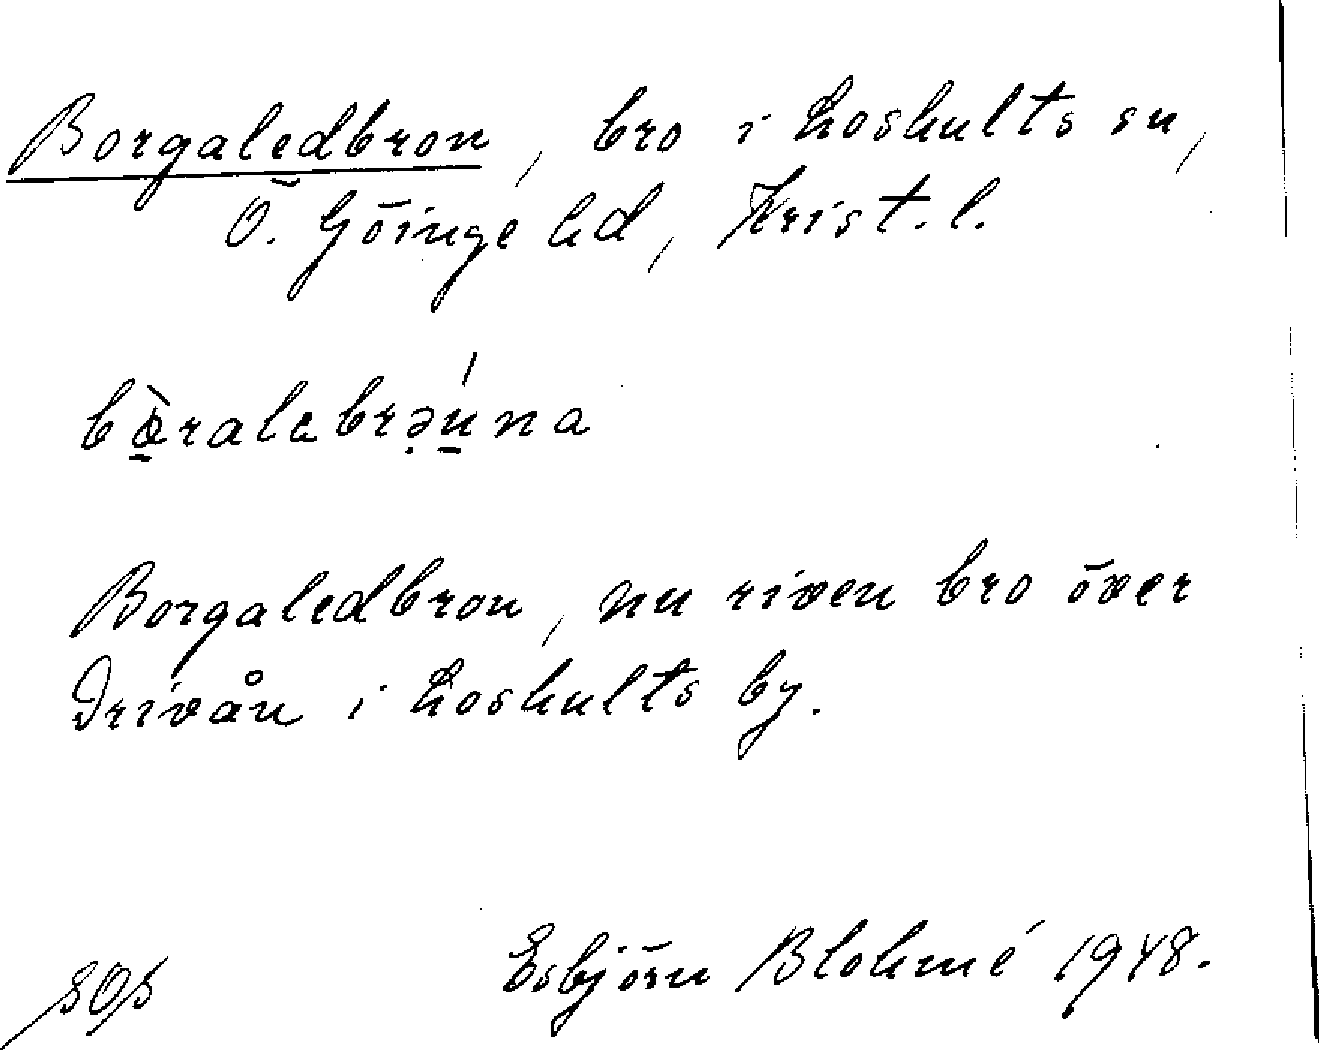 Borgaledbron, bro i Loshults sn,
Ö. Göinge hd, Krist. l.
bòralabrəúna
Borgaledbron, nu riven bro över
Drivån i Loshults by.
Esbjörn Blohmé 1948.